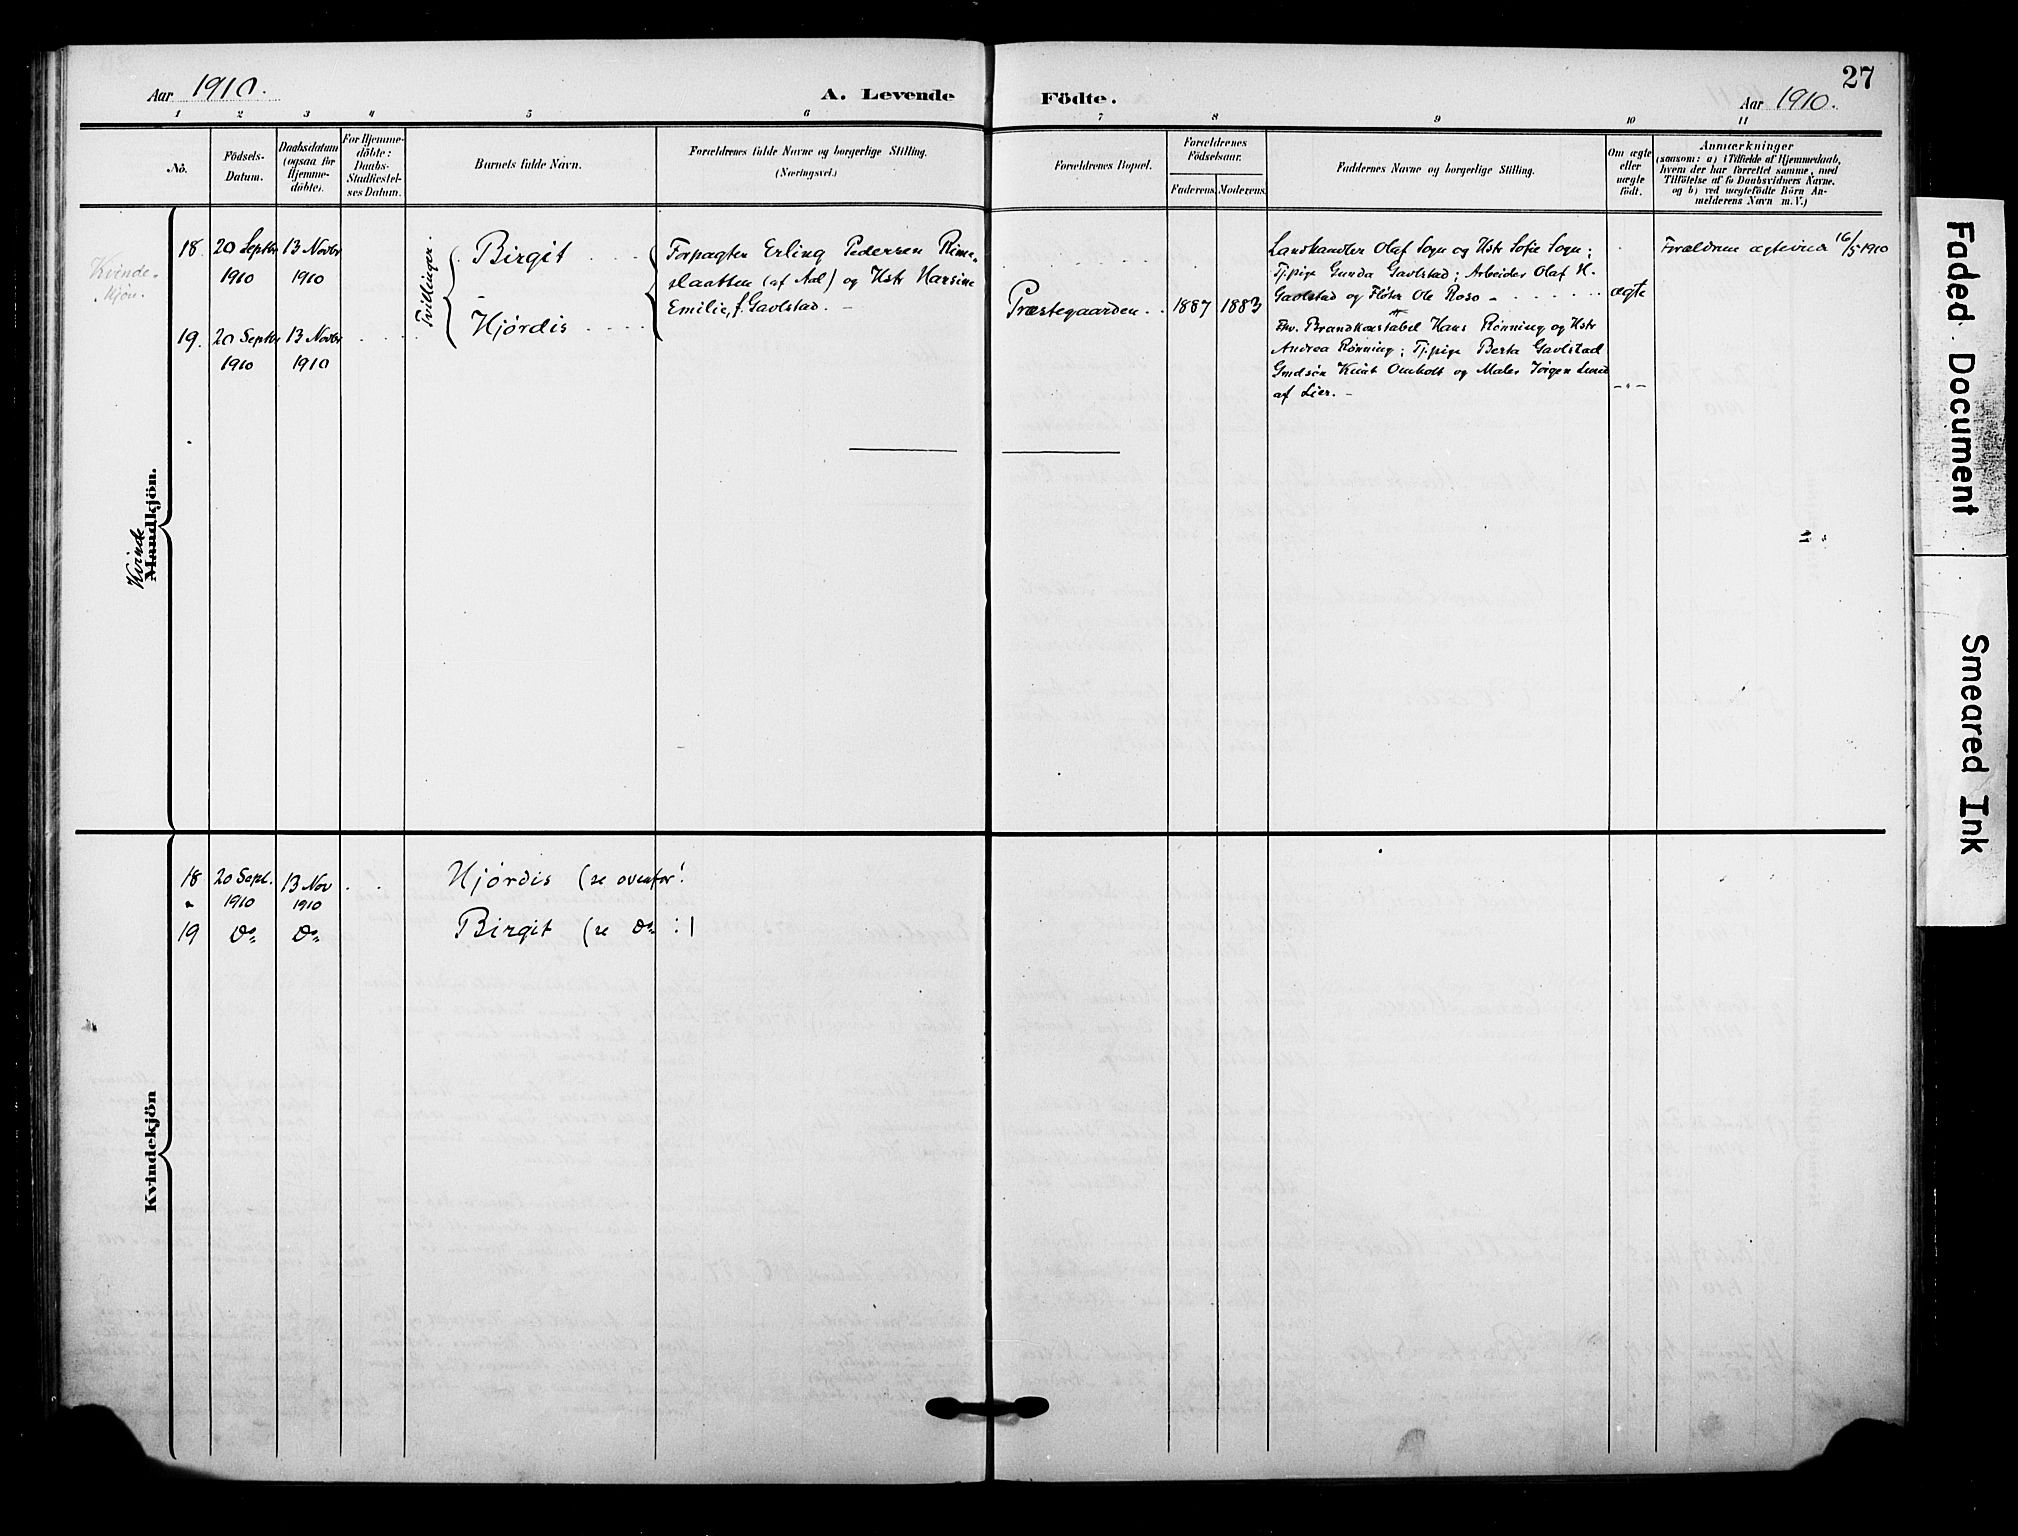 27
Aar 1910.
A. Levende Födte.
Aar 1910.
1 2 3 4 5 6 7 8 9 10 11
No.
Födsels-
Datum.
Daabsdatum
(ogsaa for
Hjemme-
döbte).
For Hjemme-
döbte:
Daabs-
Stadfæstel-
ses Datum.
Barnets fulde Navn.
Forældrenes fulde Navne og borgerlige Stilling.
(Næringsvei.)
Forældrenes Bopæl.
Forældrenes
Födselsaar.
Faderens. Moderens.
Faddernes Navne og borgerlige Stilling.
Om ægte
eller
uægte
födt.
Anmærkninger
(saasom: a) i Tilfælde af Hjemmedaab,
hvem der har forrettet samme, med
Tilföielse af to Daabsvidners Navne,
og b) ved uægtefödte Börn An-
melderens Navn m. V.)
Kvinde-
kjön.
Kvinde
Mandkjön.
18. 20 Septbr
1910
13 Novbr
1910
Tvillinger.
Birgit
Forpagter Erling Pedersen
slaatten (af Aal) og Hstr Hansine
Emilie, f. Gavlstad. –
Præstegaarden.
1887 1883
Landhandler Olaf Sogn og Hstr Sofie Sogn;
Tj.pige Gunda Gavlstad; Arbeider Olaf H.
Gavlstad og Fløter Ole Roso –
ægte
Forældrene ægteviet 16/5 1910
19. 20 Septbr
1910
13 Novbr
1910
Hjørdis
Brandkonstabel Hans Rønning og Hstr
Andrea Rønning; Tj.pige Berta Gavlstad
Gmdsøn Knut Omholt og Maler Jørgen Lund
af Lier. –
– " –
Kvindekjön
18 20 Sept.
1910
13 Nov
1910
Hjørdis (se ovenfor!
19 Do Do Birgit (se Do :|
Faded Document
Smeared Ink